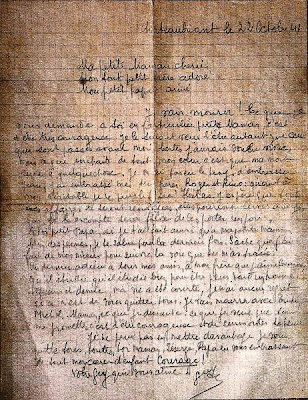 Châteaubriant le 22 Octobre 41
Ma petite Maman chérie
Mon tout petit frère adoré
Mon petit papa aimé
Je vais mourir! Ce que je
vous demande à toi en petite Maman c'est
d'être courageuse. Je le suis et veux l'être autant que ceux
qui sont passés avant moi. Certes j'aurais voulu vivre,
mais ce que je souhaite de tout mon cœur c'est que ma mort
serve à quelque chose. Je n'ai pas eu le temps d'embrasser
j'ai embrassé mes frères Roger et Rino; quant à
mon je ne peux hélas! J'espère que
Serge
je il sera fier de les porter un jour.
A toi petit Papa si je t'ai fait ainsi qu'à ma petite Maman
bien des peines, je te salue pour la dernière fois. Sache que j'ai
fait de mon mieux pour suivre la voie que tu m'as tracée.
Un dernier adieu à tous mes amis, à mon frère que j'aime beau-
coup. Qu'il étudie, qu'il étudie bien pour être plus tard un homme.
17 ans ½, ma vie a été courte, je n'ai aucun regret
si ce n'est de vous quitter tous. Je vais mourir avec
Michels. Maman, ce que je te demande, ce que je veux que tu
me promettes, c'est d'être courageuse et de surmonter ta peine.
Je ne peux pas en mettre davantage je vous
quitte tous, toutes, toi Maman, Serge, Papa en vous embrassant
de tout mon cœur d'enfant. Courage!
Votre Guy qui vous aime
Guy